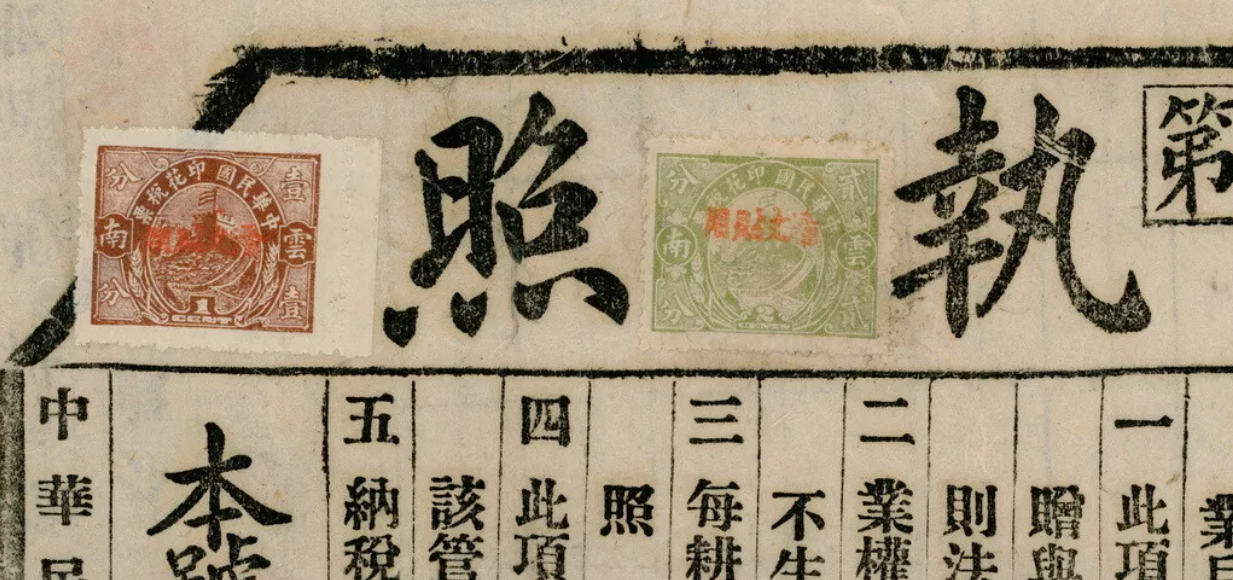 執照
第
貳分
中華民國印花
雲南
貳分
2
CENTS
壹分
中華民國印花稅票
雲南
壹分
1
CENT
業
一 此項
贈與
則法
二 業權
不生
三 每耕
照
四 此項
該管
五 納稅
本號
中華民